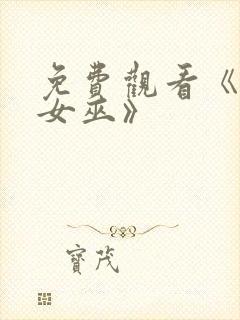 免費觀看《
女巫》
寶茂